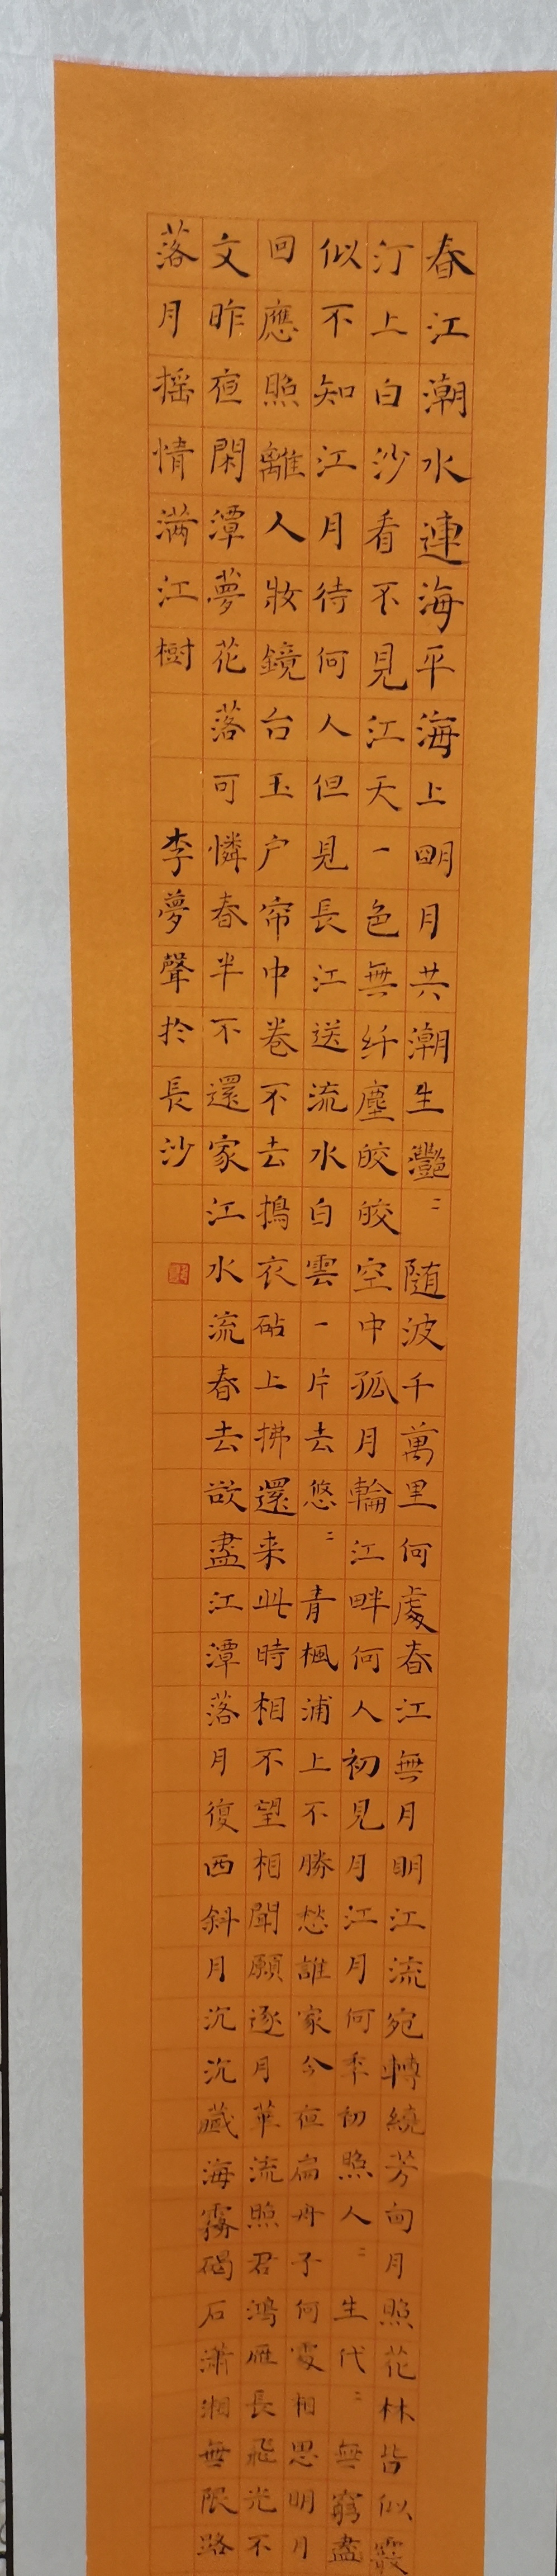 春江潮水連海平海上朙月共潮生灔〻随波千萬里何處春江無月明江流宛轉繞芳甸月照花林皆似霰
汀上白沙看不見江天一色無纤塵皎皎空中孤月輪江畔何人初見月江月何秊初照人〻生代〻無窮盡
似不知江月待何人但見長江送流水白雲一片去悠〻青楓浦上不勝愁誰家今夜扁舟子何處相思明月
回應照離人妝鏡台玉户帘中卷不去搗衣砧上拂還来此時相不望相聞願逐月華流照君鴻雁長飛光不
文昨夜閑潭夢花落可憐春半不還家江水流春去欲盡江潭落月復西斜月沉沉藏海霧碣石瀟湘無限路
落月摇情满江樹
李夢聲於長沙